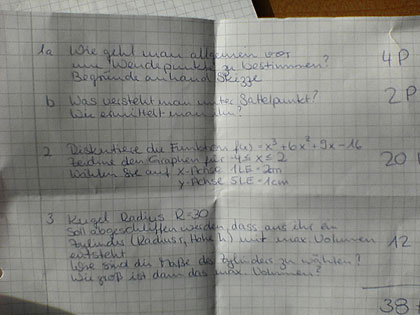 1a Wie geht man allgemein vor
um Wendepunkte zu bestimmen?
Begründe anhand Skizze
4P
b Was versteht man unter Sattelpunkt?
Wie ermittelt man ihn?
2P
2 Diskutiere die Funktion f(x) = x³+6x²+9x-16
Zeichne den Graphen für -4≤x≤2
Wählen Sie auf x-Achse 1LE=2cm
y-Achse 5LE=1cm
20 P
3 Kugel Radius R=30
Soll abgeschliffen werden, dass aus ihr ein
Zylinder (Radius r, Höhe h) mit max. Volumen
entsteht
Wie sind die Maße des Zylinders zu wählen?
Wie groß ist dann das max. Volumen?
12
38